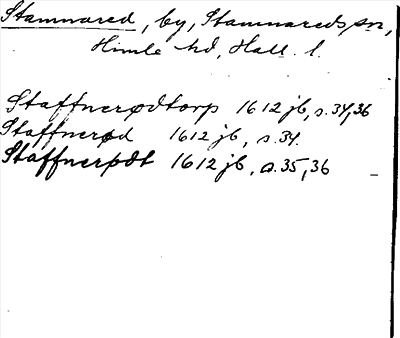 Stamnared, by, Stamnareds sn,
Himle hd, Hall. l.
Staffnerødtorp 1612 jb, s. 34, 36
Staffnerød 1612 jb, s. 34.
Staffnerødt 1612 jb, s. 35, 36